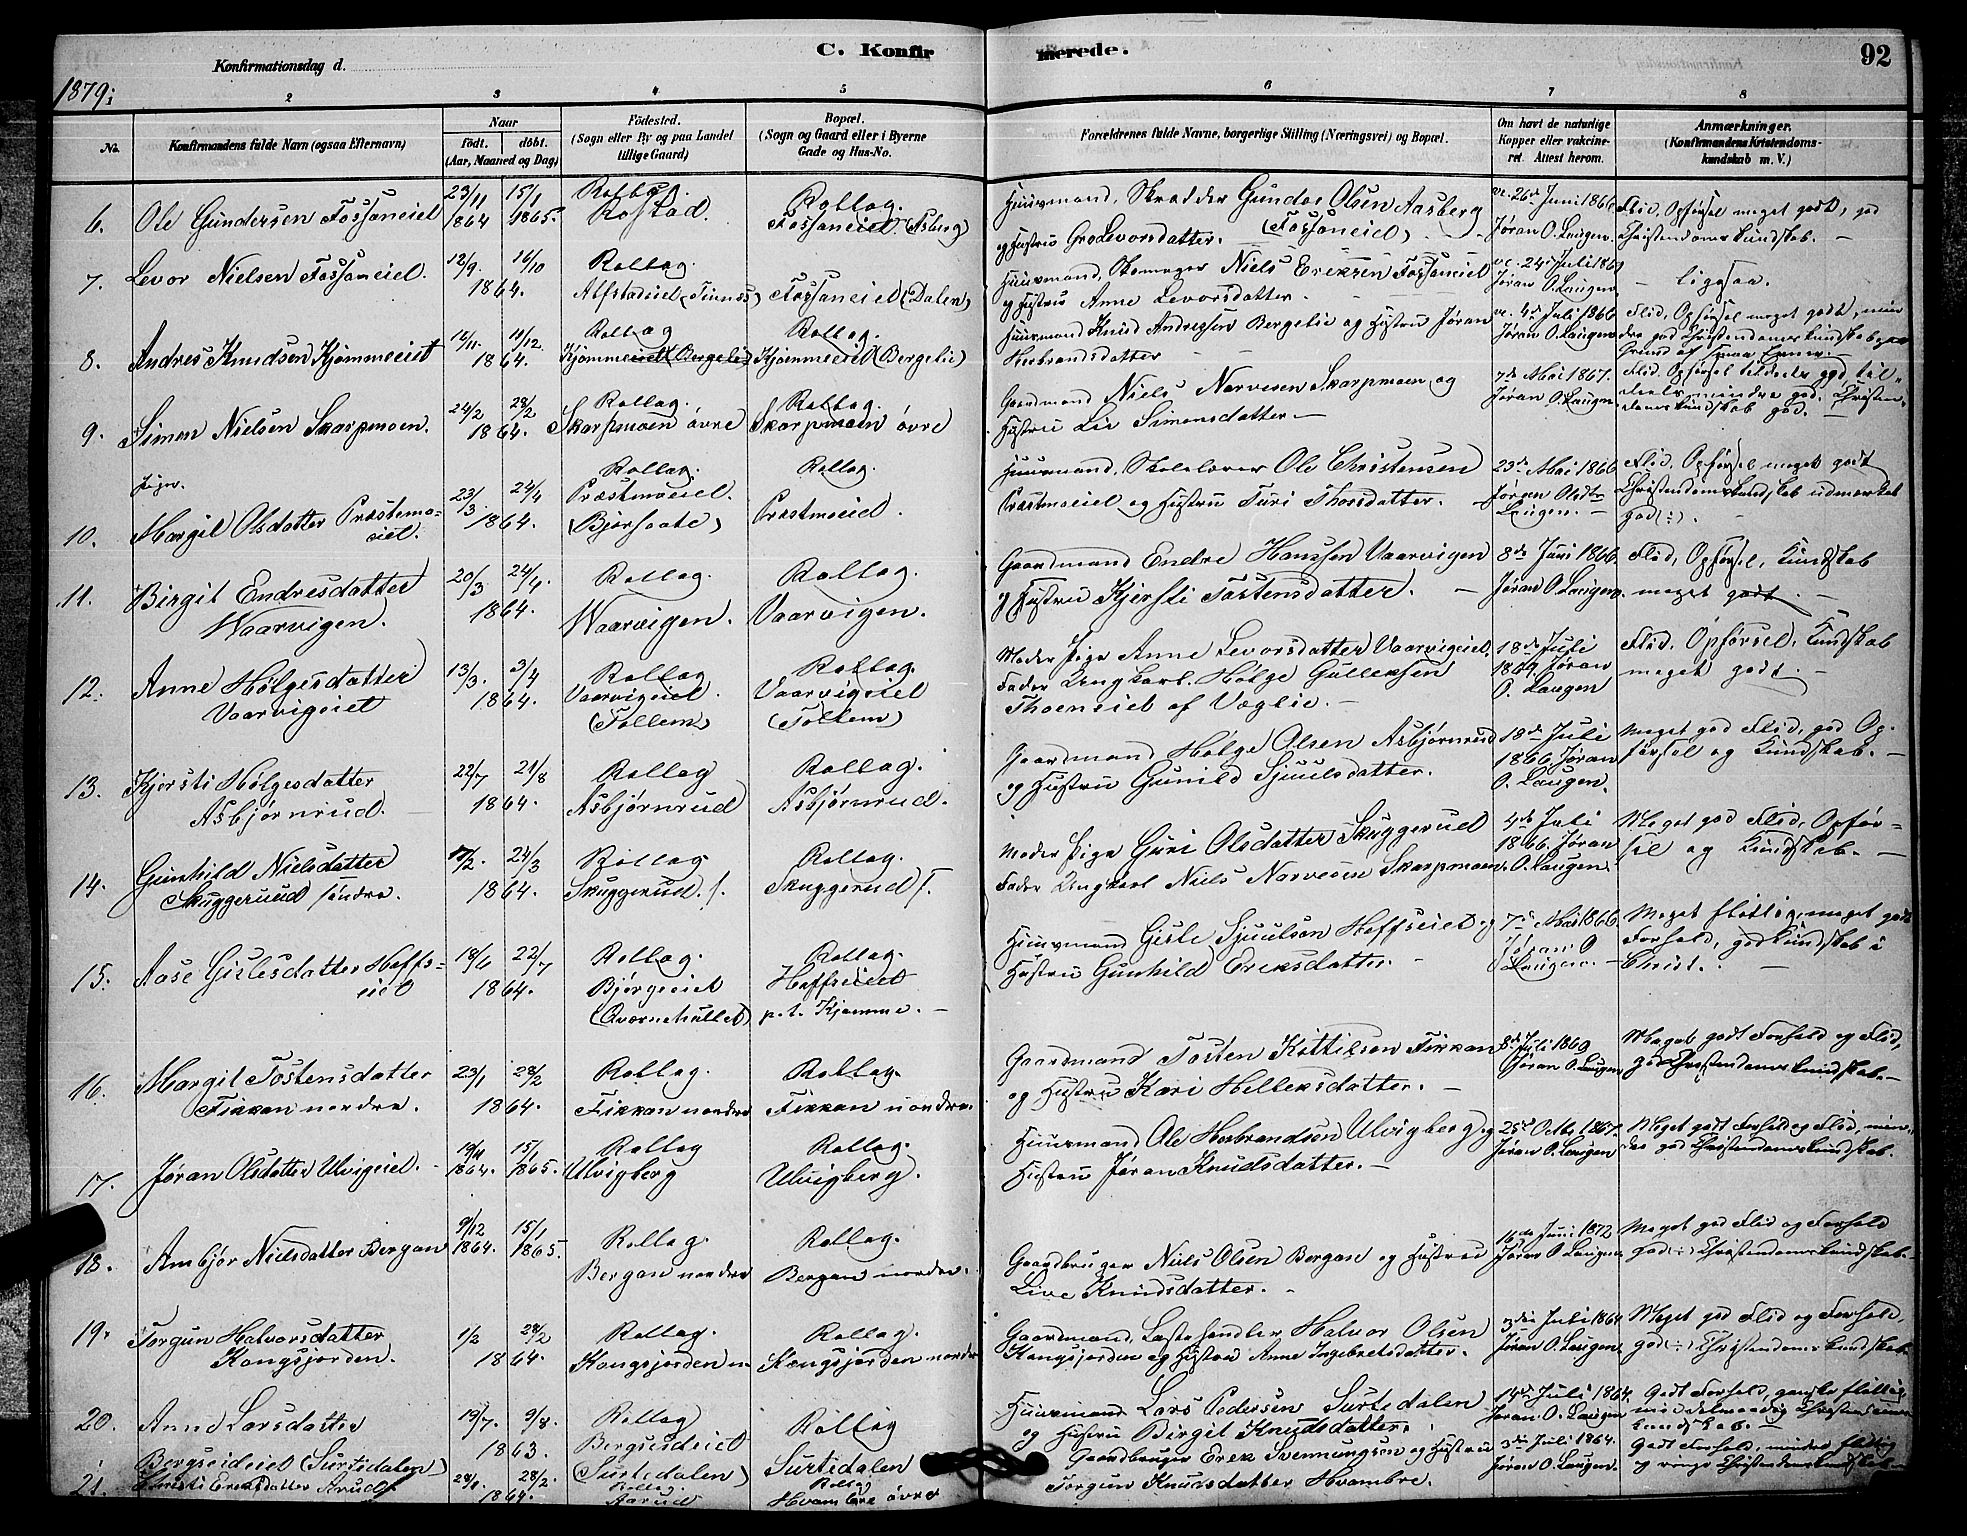 C. Konfirmerede.
92
Konfirmationsdag d.
1879.
2 3 4 5 6 7 8
No.
Konfirmandens fulde Navn (ogsaa Efternavn)
Naar
födt. döbt.
(Aar, Maaned og Dag)
Födested.
(Sogn eller By og paa Landet
tillige Gaard)
Bopæl.
(Sogn og Gaard eller i Byerne
Gade og Hus-No.
Forældrenes fulde Navne, borgerlige Stilling (Næringsvei) og Bopæl.
Om havt de naturlige
Kopper eller vakcine-
ret. Attest herom.
Anmærkninger.
(Konfirmandens Kristendoms-
kundskab m. V.)
6. Ole Gundersen Fossaneiet
23/11 1864 15/1 1865.
Rollag. Rostad.
Rollag. Fossaneiet (Asberg)
Huusmand, Skrædder Gunder Olsen Aasberg
og Hustru Gro Levorsdatter. (Fossaneiet)
vc. 26de Juni 1866
Jøran O. Laugen.
Flid, Opførsel meget godt, god
Christendomskundskab. —
7. Levor Nielsen Fossaneiet.
12/9. 16/10 1864.
Rollag
Alfstadeiet
Fossaneiet (Dalen)
Huusmand, Skomager Niels Eriksen Fossaneiet
og Hustru Anne Levorsdatter.
Jøran O. Laugen
ligesaa.
8. Andres Knudsen Kjømmeeiet
12/11. 11/12. 1864.
Rollag
Kjømmeeiet (Bergelie)
Rollag.
Kjømmeeiet (Bergelie)
Huusmand Knud Andresen Bergelie og Hustru Jøran
Herbrandsdatter
vc. 4de Juli 1866
Jøran O. Laugen.
Flid, Opførsel meget godt, min-
dre god Christendomskundskab paa
Grund af smaa Evner.
9. Simen Nielsen Skarpmoen.
24/2 28/2 1864.
Rollag.
Skarpmoen øvre
Rollag.
Skarpmoen øvre
Gaardmand Niels Narvesen Skarpmoen og
Hustru Liv Simensdatter. —
7de Mai 1867.
Jøran O. Laugen.
Flid, Opførsel tildeels god, til-
deels mindre god. Christen-
domskundskab god. —
Piger.
10. Margit Olsdatter Præstemo-
eiet.
23/3. 24/4 1864.
Rollag.
Præstmoeiet.
Rollag.
Præstmoeiet.
Huusmand, Skolelærer Ole Christensen
Præstmoeiet og Hustru Turi Thorsdatter.
23de Mai 1866
Jøran Olsdtr
Laugen. —
Flid, Opførsel meget godt
Christendomskundskab udmærket
god
11. Birgit Endresdatter
Vaarvigen.
20/3 24/4. 1864.
Rollag.
Vaarvigen.
Rollag.
Vaarvigen.
Gaardmand Endre Hanssen Vaarvigen
og Hustru Kjersti Tostensdatter. —
8de Juni 1866.
Jøran O. Laugen.
Flid, Opførsel, Kundskab
meget godt. —
12. Anne Hølgesdatter
Vaarvigeiet
13/3. 3/4 1864.
Rollag
Vaarvigeiet.
(Tollem)
Rollag.
Vaarvigeiet
(Tollem)
Moder Pige Anne Levorsdatter Vaarvigeiet.
Fader Ungkarl Hølge Gulleksen
Thoeneiet af Væglie. —
18de Juli
1869 Jøran
O. Laugen
Flid, Opførsel, Kundskab
meget godt —
13. Kjersti Hølgesdatter
Asbjørnrud.
22/7 21/8 1864.
Rollag
Asbjørnrud
Rollag.
Asbjørnrud.
Gaardmand Hølge Olsen Asbjørnrud
og Hustru Gunild Sjuulsdatter.
18de Juli
1866, Jøran
O. Laugen.
Meget god Flid, god Op-
førsel og Kundskab. —
14. Gunhild Nielsdatter
Skuggeruud søndre.
24/3 1864.
Rollag
Skuggerud. s.
Rollag.
Skuggerud s.
Moder Pige Guri Olsdatter Skuggerud
Fader Ungkarl Niels Narvesen Skarpmoen.
4de Juli
1866. Jøran
O. Laugen.
Meget god Flid, Opfør-
sel og Kundskab. —
15. Aase Gislesdatter Hoffs-
eiet
18/6 22/7 1864.
Rollag.
Bjørgeeiet
(Qværnehullet)
Rollag.
Hoffseiet
p.t. Kjømme. —
Huusmand Gisle Sjuulson Hoffseiet og
Hustru Gunhild Eriksdatter.
7de Mai 1866
Jøran O
Laugen. —
Meget flittig, meget godt
Forhold, god Kundskab i
Christ. —
16. Margit Tostensdatter
Fikkan nordre.
23/1 28/2 1864.
Rollag.
Fikkan nordre
Rollag.
Fikkan nordre.
Gaardmand Tosten Kittilson Fikkan
og Hustru Kari Helleksdatter. —
8de Juli 1869
Jøran O. Laugen
Meget godt Forhold og Flid,
god Christendomskundskab. —
17. Jøran Olsdatter Ulvigeiet.
1864. 15/1 1865.
Rollag
Ulvigberg
Rollag.
Ulvigberg.
Huusmand Ole Herbrandsøn Ulvigberg og
Hustru Jøran Knudsdatter. —
25de Octbr. 1867.
Jøran O. Laugen
Meget godt Forhold og Flid, min-
dre god Christendomskundskab.
18. Ambjør Nielsdatter Bergan
9/12 1864. 15/1 1865.
Rollag.
Bergan nordre
Rollag.
Bergan nordre.
Gaardbruger Niels Olsen Bergan og Hustru
Live Knudsdatter. —
16de Juni 1872
Jøran O. Laugen
Meget god Flid og Forhold
god Christendomskundskab.
19. Torgun Halvorsdatter
Kongsjorden.
1/2 28/2 1864.
Rollag.
Kongsjorden n.
Rollag.
Kongsjorden nordre
Gaardmand, Lastehandler Halvor Olsen
Kongsjorden og Hustru Anne Ingebretsdatter.
3die Juli 1864
Jøran O. Laugen.
Meget god Flid og Forhold,
god Christendomskundskab.
20. Anne Larsdatter
Bergseideiet (Surtedalen)
19/7. 9/8. 1863.
Rollag
Bergseideiet
(Surtedalen)
Rollag
Surtedalen
Huusmand Lars Pedersen Surtedalen
og Hustru Birgit Knudsdatter.
14de Juli 1864.
Jøran O. Laugen
Godt Forhold, ganske flittig,
middelmaadig Christendoms-
kundskab. —
21. Eriksdatter
28/2. 1864.
Rollag.
Aarud
Rollag
Hvambre øvre
Gaardbruger Erek Svennungsen og Hustru
Torgun Knudsdatter Hvambre.
3die Juli 1864.
Jøran O. Laugen.
Godt Forhold, mindre flittig
og ringe Christendomskundskab.